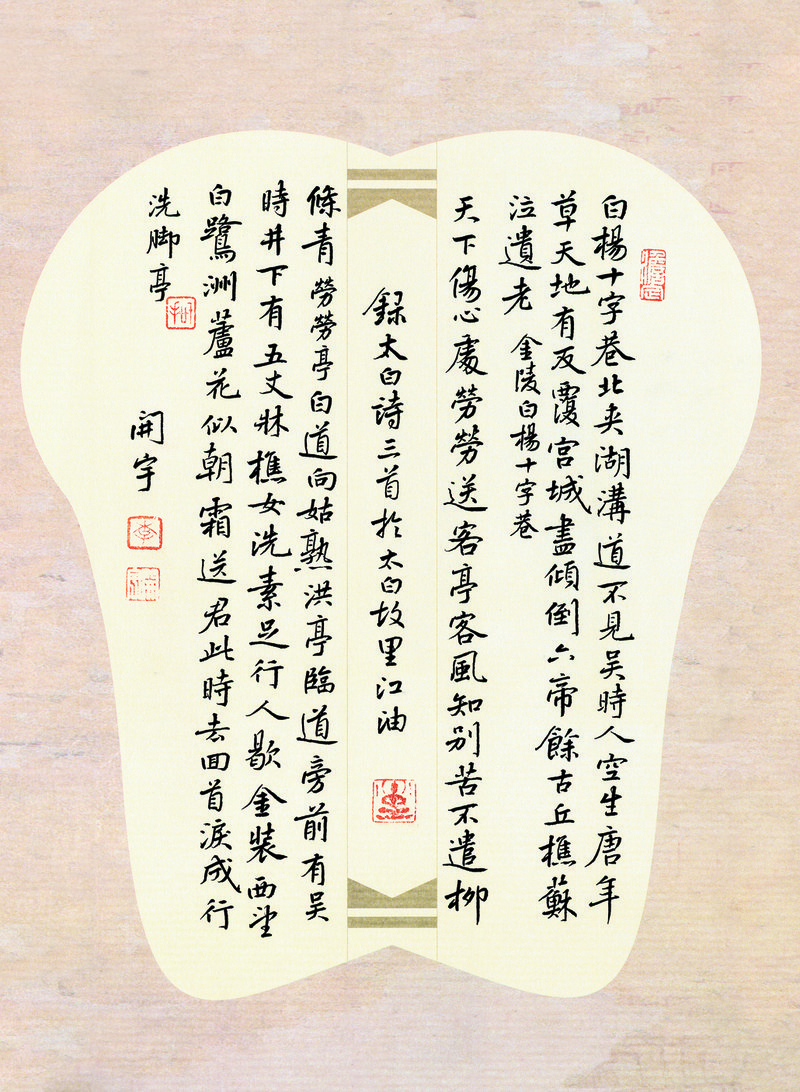 白楊十字巷北夾湖溝道不見吴時人空生唐年
草天地有反覆宫城盡傾倒六帝餘古丘樵蘇
泣遺老 金陵白楊十字巷
天下傷心處勞勞送客亭客風知别苦不遣柳
録太白詩三首於太白故里江油
條青 勞勞亭 白道向姑熟洪亭臨道旁前有吴
時井下有五丈牀樵女洗素足行人歇金装西望
白鷺洲蘆花似朝霜送君此時去回首淚成行
洗脚亭
開宇